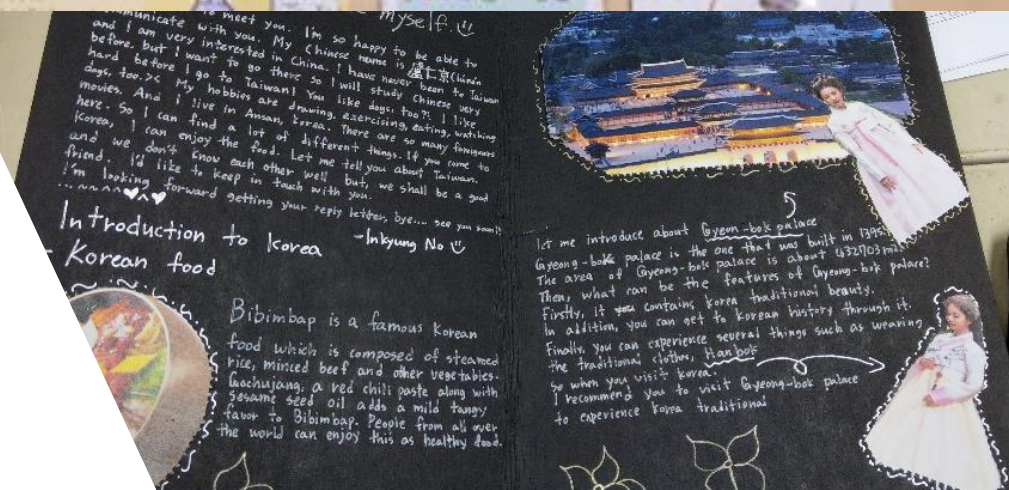 myself.
to meet you. I'm so happy to be able to
communicate with you. My Chinese name is 盧仁京
and I am very interested in China. I have never been to Taiwan
before, but I want to go there so I will study Chinese very
hard before I go to Taiwan! You like dogs, too?! I like
dogs, too.>< My hobbies are drawing, exercising, eating, watching
movies. And I live in Ansan, Korea. There are so many foreigners
here. So I can find a lot of different things. If you come to
Korea, I can enjoy the food. Let me tell you about Taiwan.
and we don't know each other well but, we shall be a good
friend. I'd like to keep in touch with you.
I'm looking forward getting your reply letter, bye.... see you soon!!
-Inkyung No
Introduction to Korea
- Korean food
Bibimbap is a famous Korean
food which is composed of steamed
rice, minced beef and other vegetables.
Gochujang, a red chili paste along with
sesame seed oil adds a mild tangy
favor to Bibimbap. People from all over
the world can enjoy this as healthy food.
let me introduce about Gyeon-bok palace
Gyeong-bok palace is the one that was built in 1395
The area of Gyeong-bok palace is about 432703
Then, what can be the features of Gyeong-bok palace?
Firstly, it contains korea traditional beauty.
In addition, you can get to korean history through it.
Finally, you can experience several things such as wearing
the traditional clothes, Hanbok
So when you visit korea.
I recommend you to visit Gyeong-bok palace
to experience korea traditional